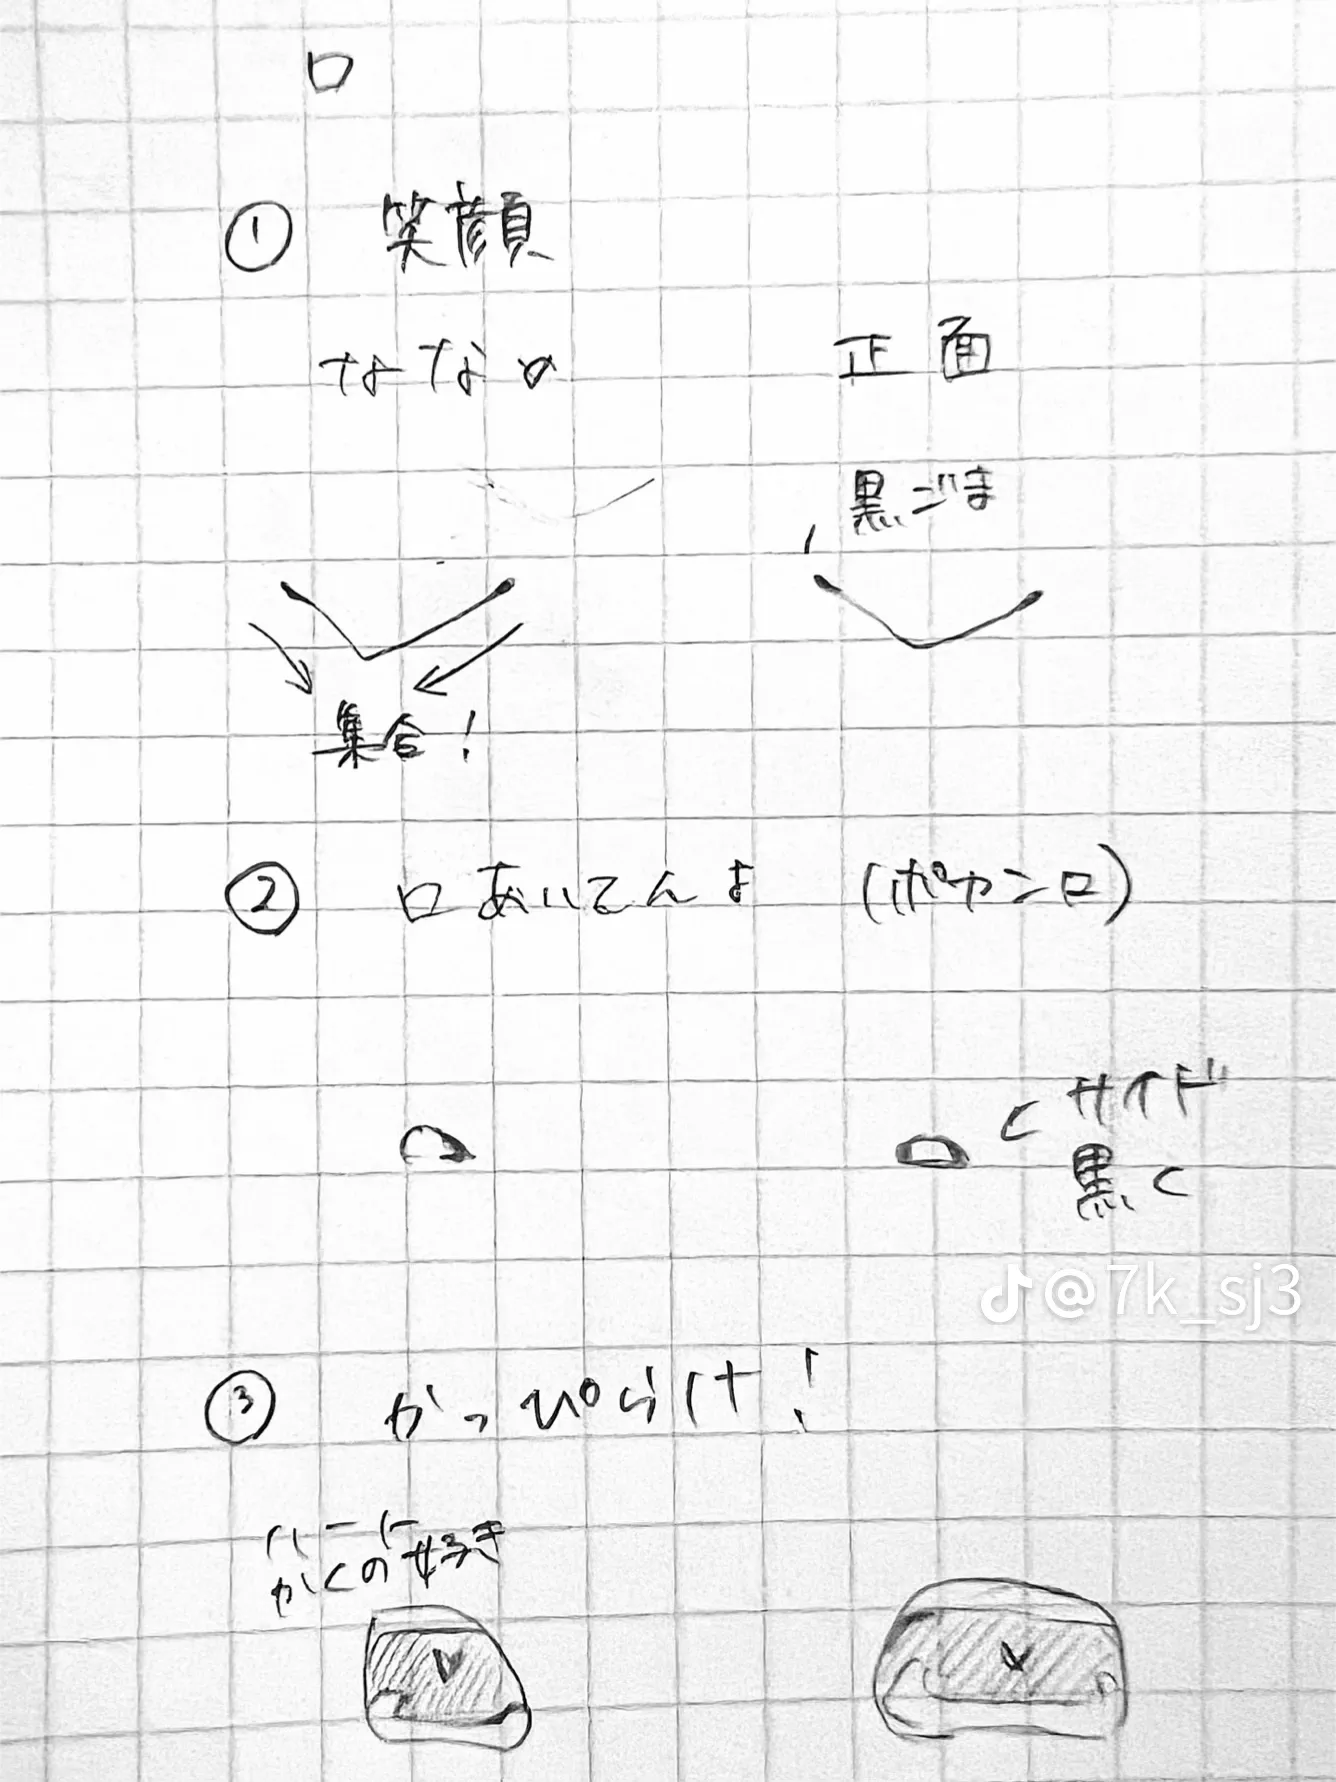 口
① 笑顔
ななめ 正面
黒ごま
集合！
② 口あいてんよ （ポカン口）
サイド
黒く
@7k_sj3
③ かっぴらけ！
ハート
かくの好き